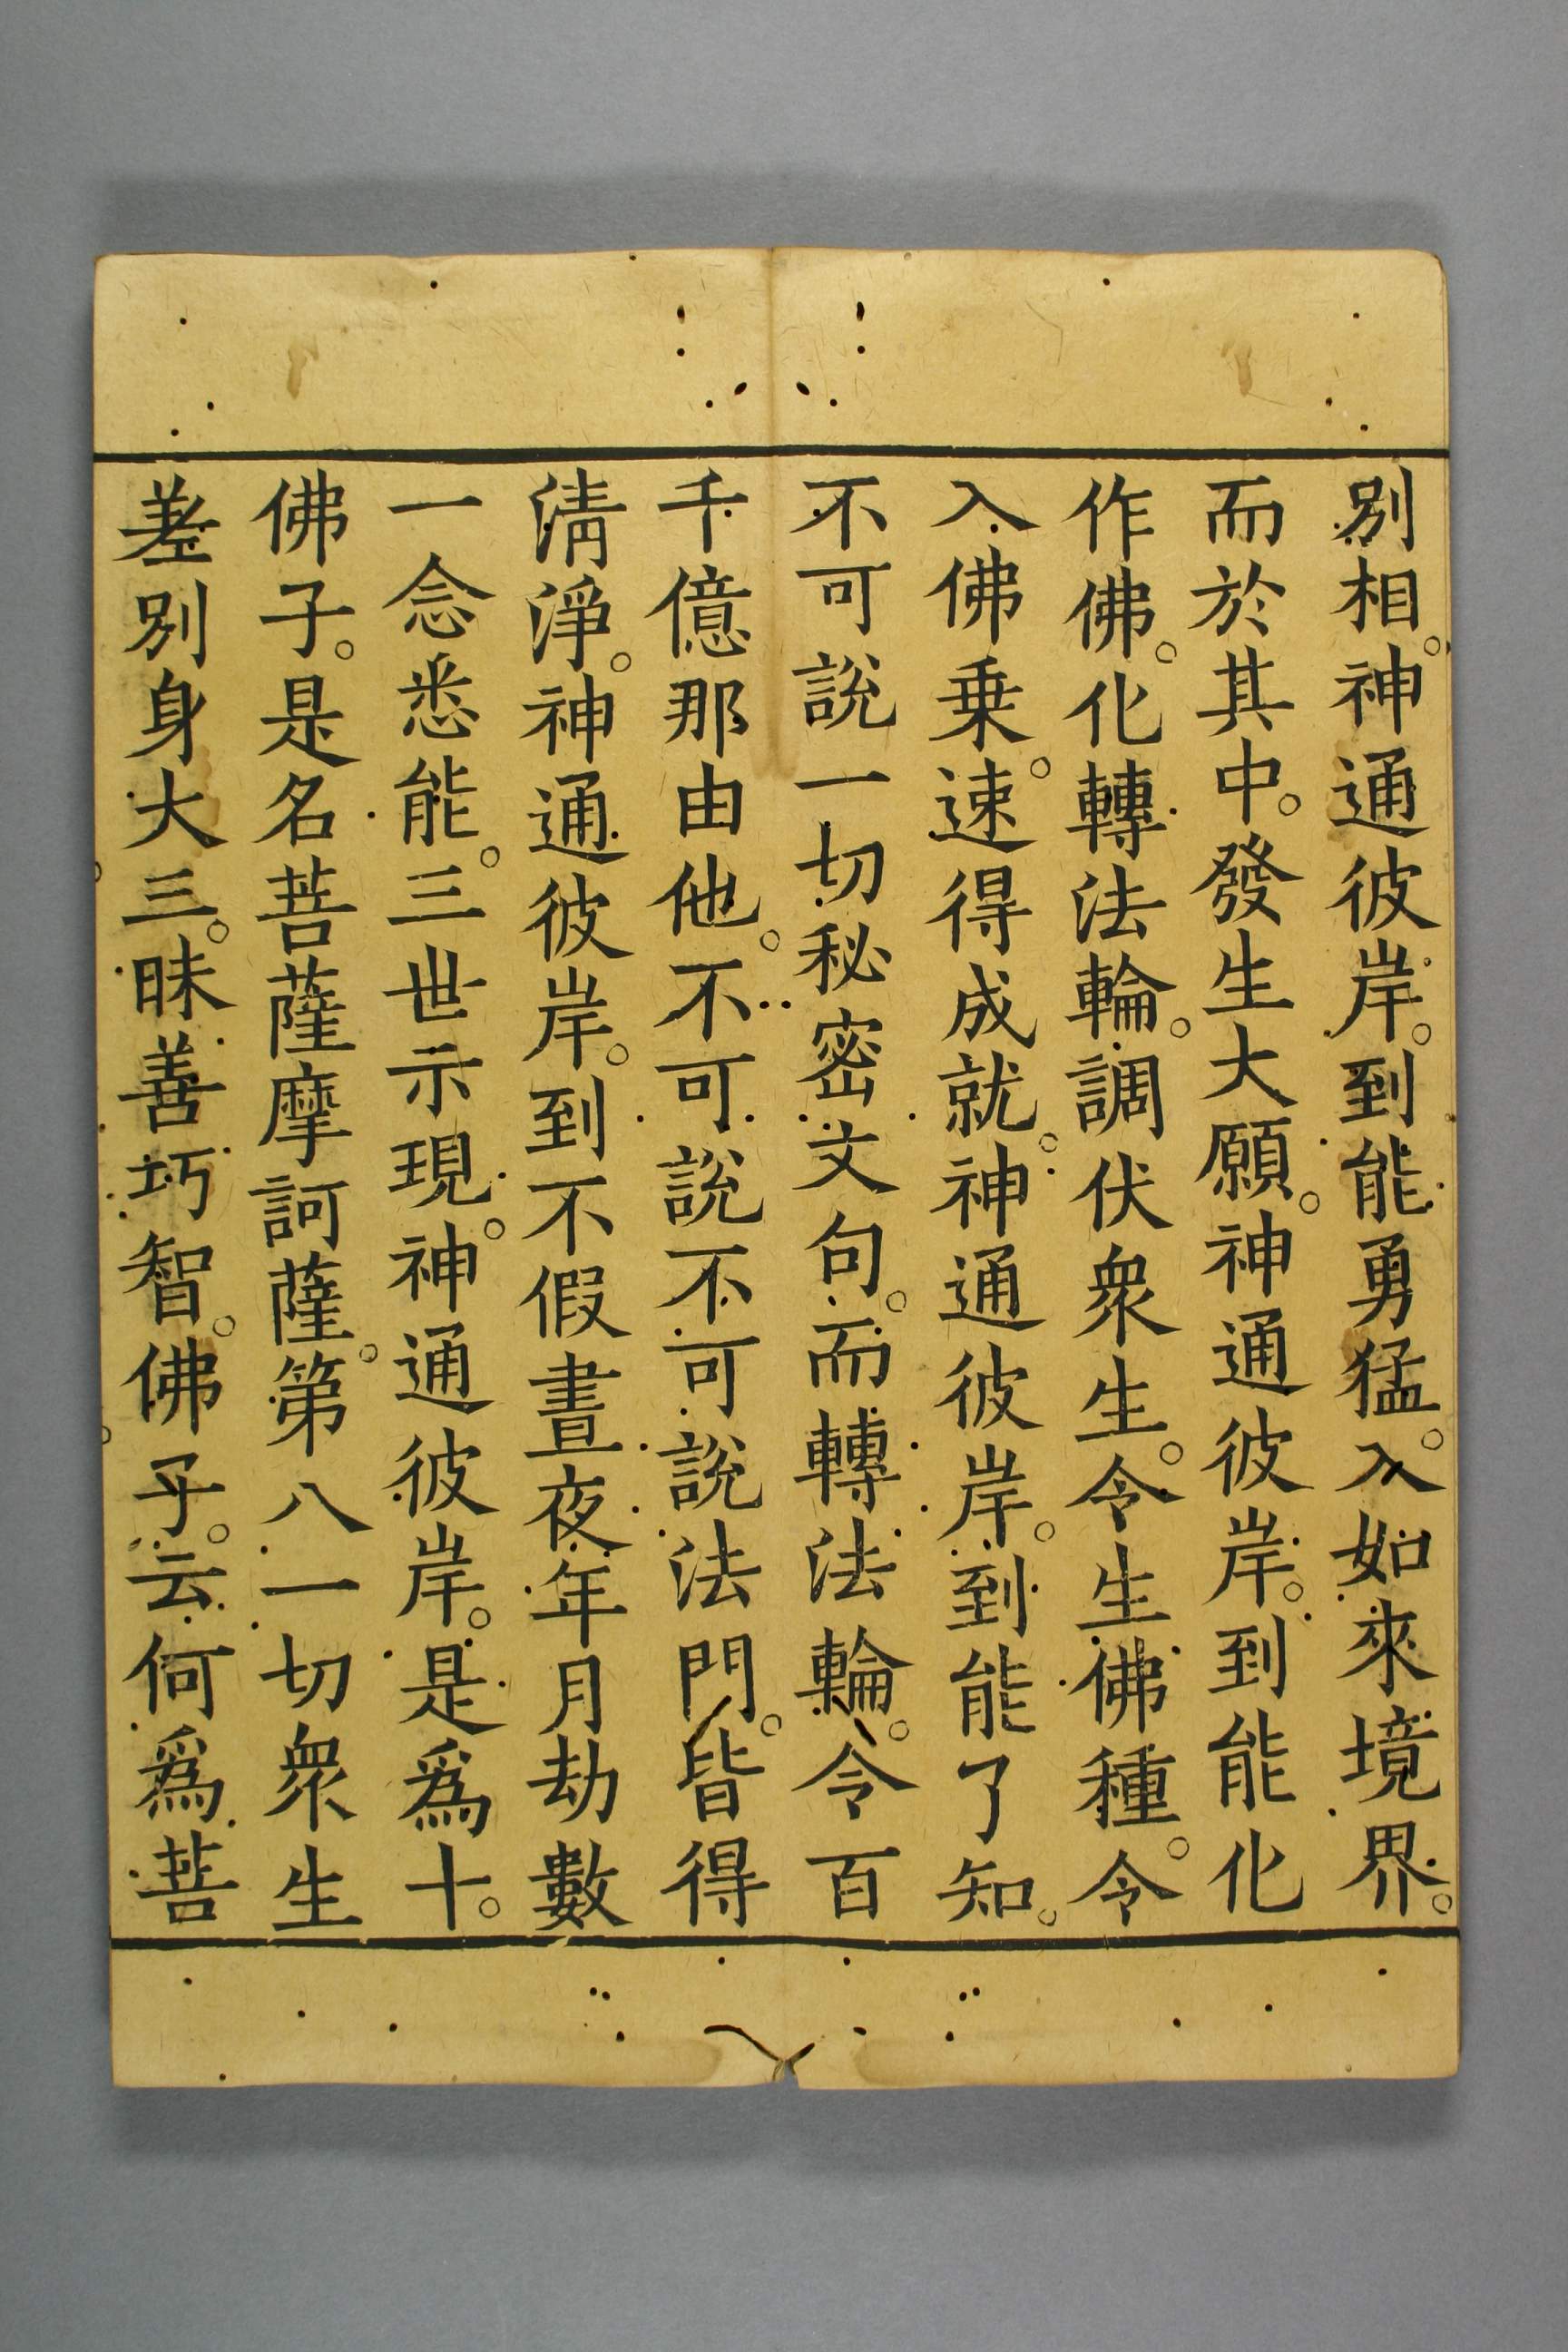 別相。神通彼岸。到能勇猛。入如來境界。
而於其中。發生大願。神通彼岸。到能化
作佛。化轉法輪。調伏衆生。令生佛種。令
入佛乗。速得成就。神通彼岸。到能了知。
不可說一切秘密文句。而轉法輪。令百
千億那由他。不可說不可說法門。皆得
清淨。神通彼岸。到不假晝夜年月劫數
一念悉能。三世示現。神通彼岸。是爲十。
佛子。是名菩薩摩訶薩。第八一切衆生
差別身大三。昧善巧智。佛乎。云何爲菩